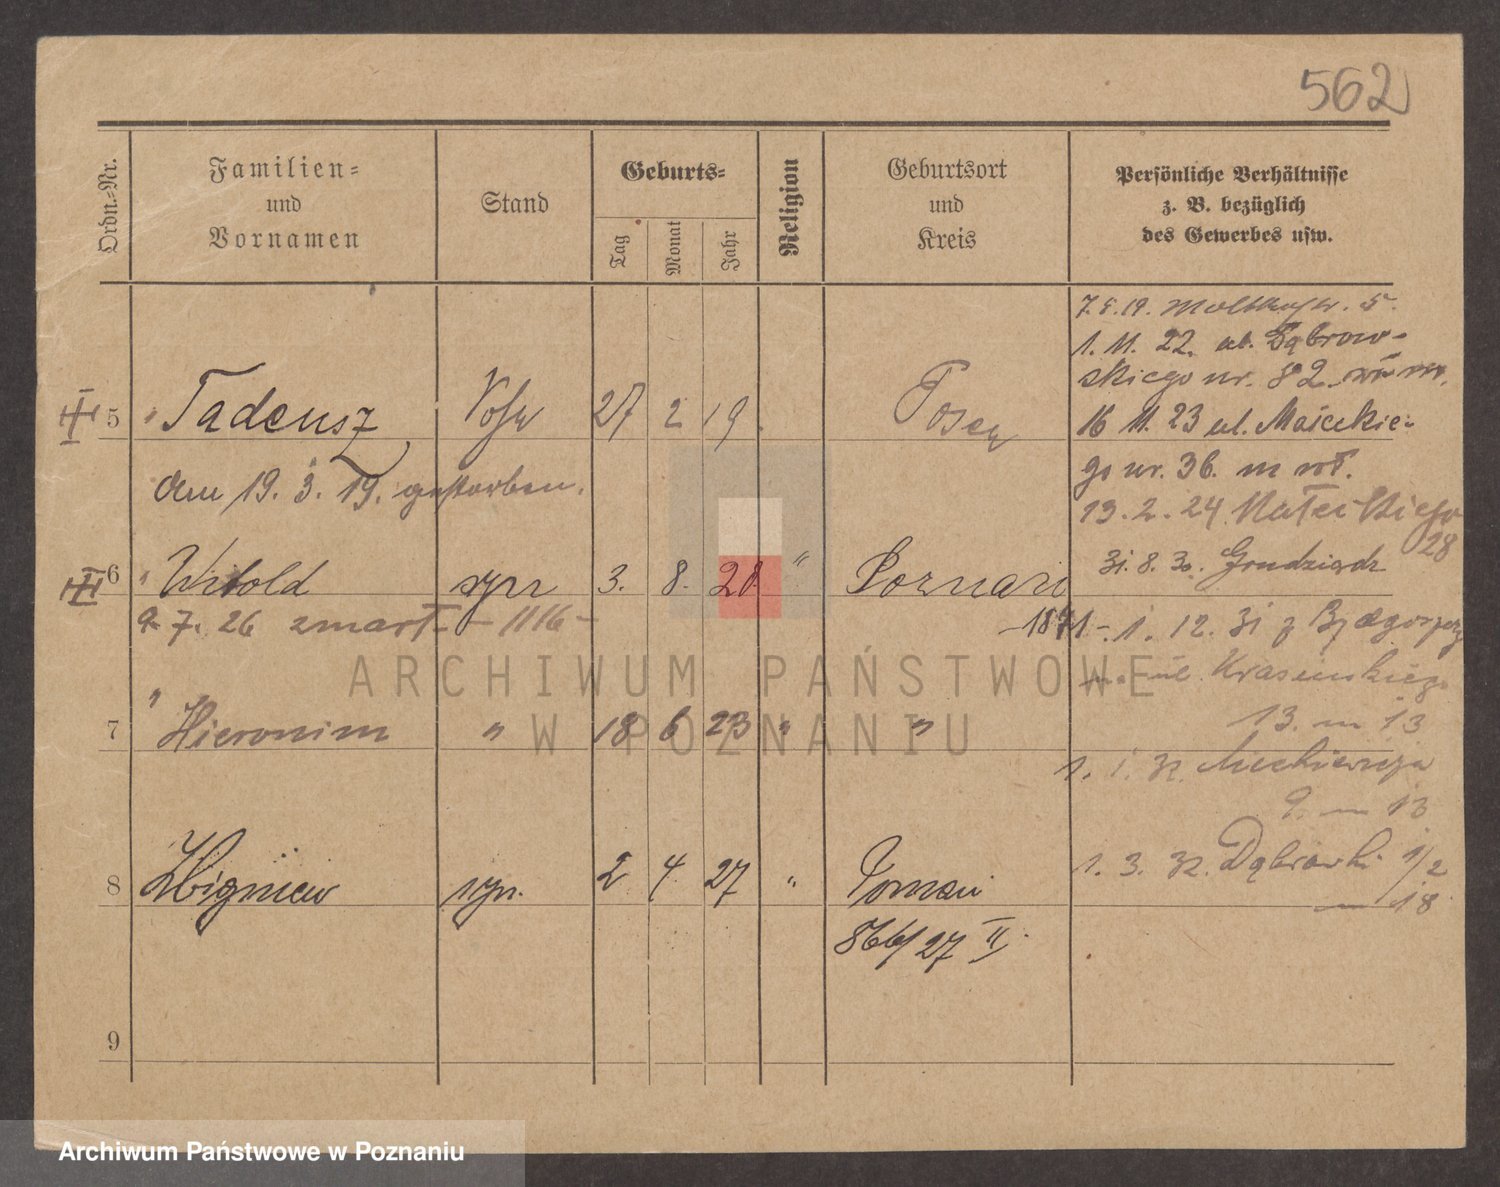 562
Ordn.-Nr.
Familien-
und
Vornamen
Stand
Geburts-
Tag
Monat
Jahr
Religion
Geburtsort
und
Kreis
Persönliche Verhältnisse
z. B. bezüglich
des Gewerbes usw.
7. 5. 19. Moltkestr. 5.
1. 11. 22. ul. Dąbrow-
skiego nr. 82
5 " Tadeusz Sohn 27 2 19 Posen
16 11. 23 ul. Małeckie-
am 19. 3. 19. gestorben.
go nr. 36. m
13. 2. 24 Małeckiego
28
6 " Witold syn 3. 8. 20 " Poznań
31. 8. 30. Grudziądz
9. 7. 26 zmarł - 1116 -
1. 12. 31 z Bydgoszczy
ul. Krasińskiego
13. m 13
7 " Hieronim " 18 6 23 " "
1. 1. 32. Mickiewicza
9. m 13
8 Zbigniew syn. 2 4 27 " Poznań
1. 3. 32. Dąbrowski 1/2
m 18
866/27 II
9
ARCHIWUM PAŃSTWOWE
W POZNANIU
Archiwum Państwowe w Poznaniu